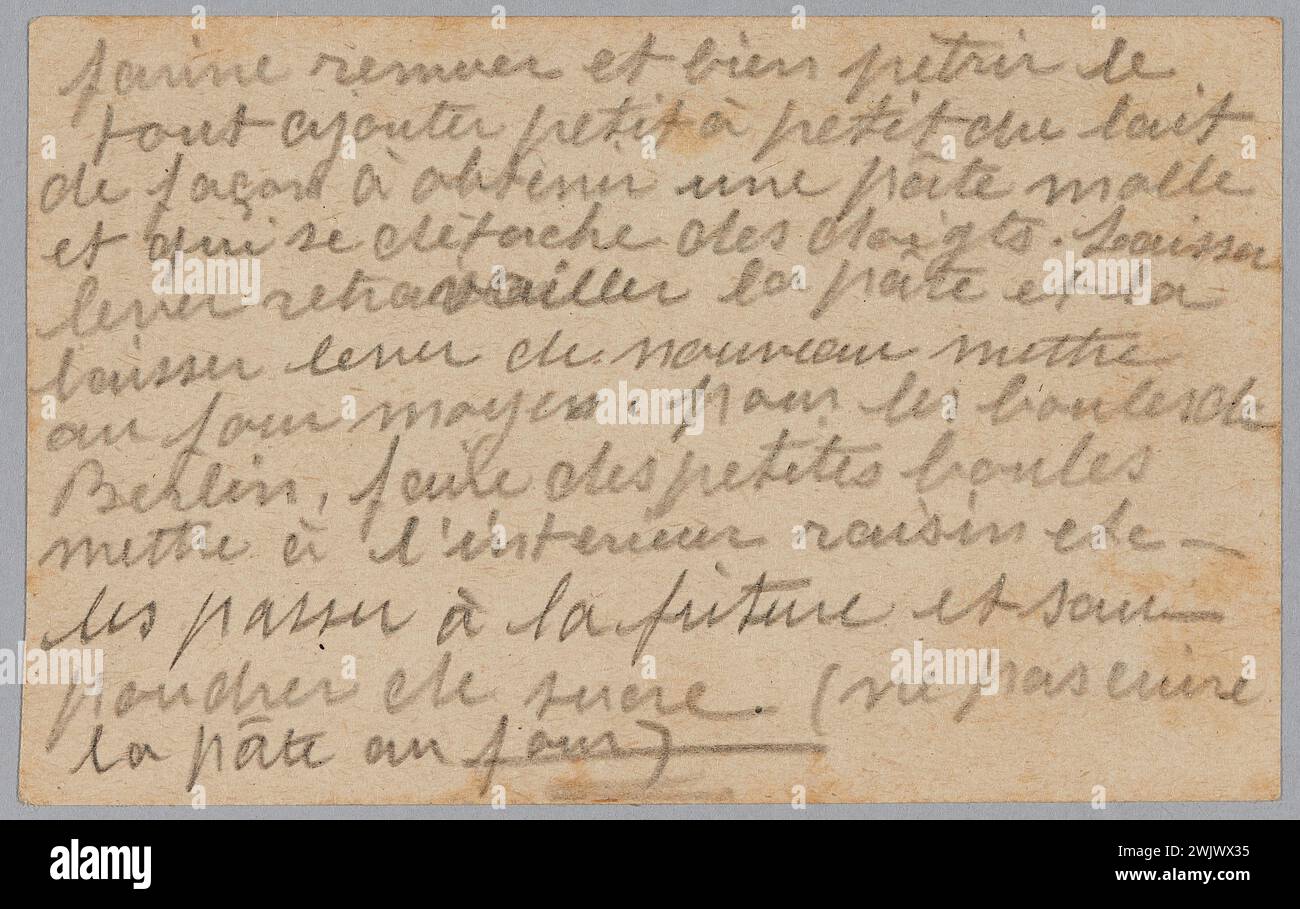 farine remuer et bien pétrir le
tout ajouter petit à petit du lait
de façon à obtenir une pâte molle
et qui se détache des doigts. Laisser
lever retravailler la pâte et la
laisser lever de nouveau mettre
au four moyen. pour les boules de
Berlin, faire des petites boules
mettre à l'intérieur raisin etc —
les passer à la friture et sau—
poudrer de sucre. (ne pas cuire
la pâte au four)
alamy
Image ID: 2WJWX35
www.alamy.com